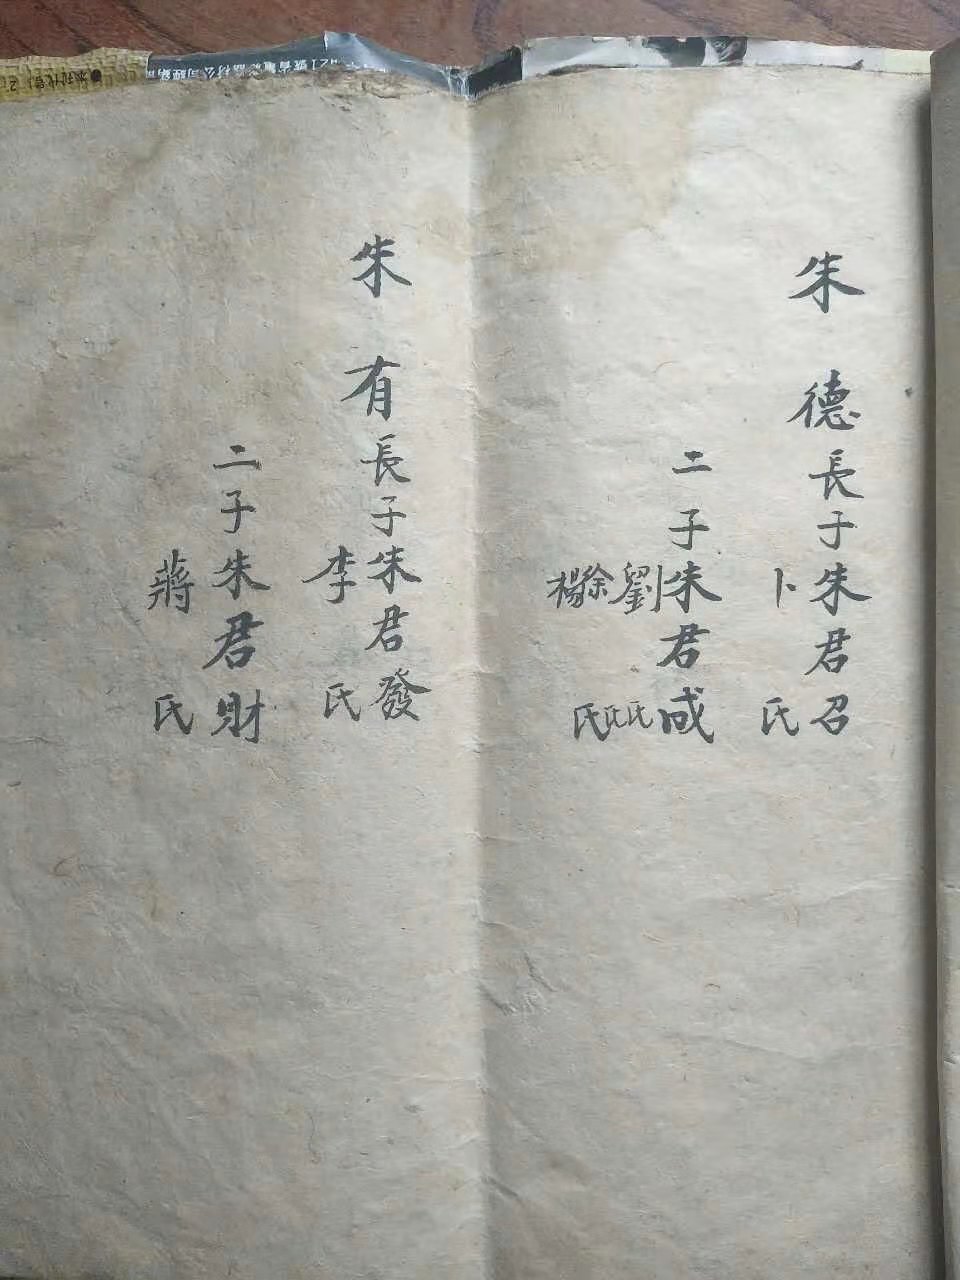 朱德長子朱君召
卜氏
二子朱君成
劉氏
徐氏
楊氏
朱有長子朱君發
李氏
二子朱君財
蔣氏